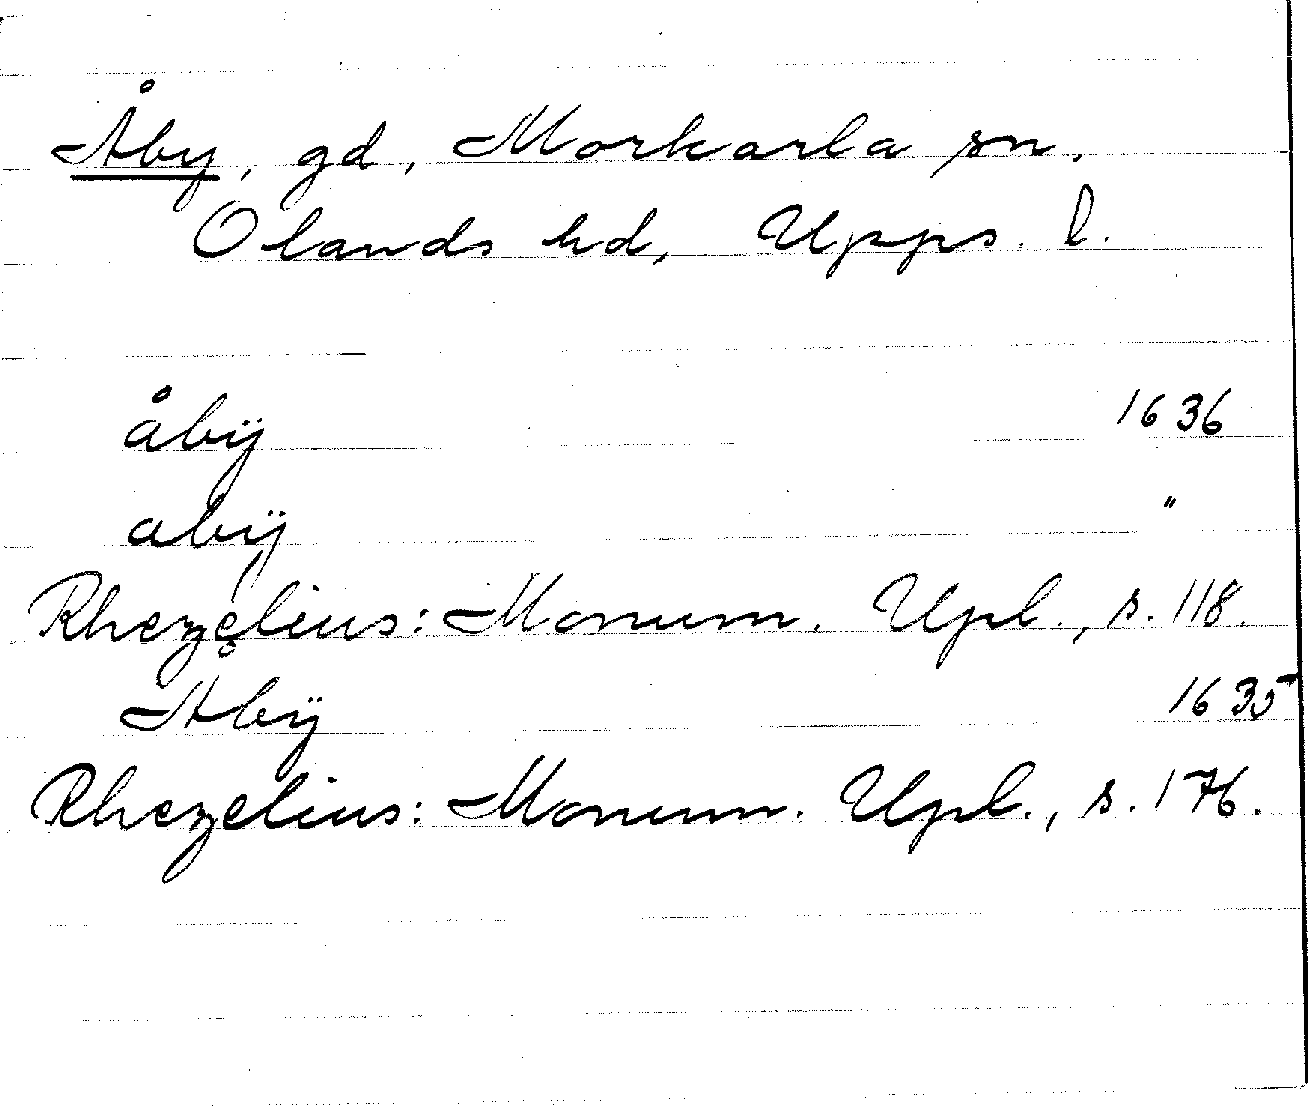 Åby, gd, Morkarla sn,
Olands hd, Upps. l.
åbÿ 1636
abÿ "
Rhezelius: Monum. Upl., s. 118.
Abÿ 1635
Rhezelius: Monum. Upl., s. 176.